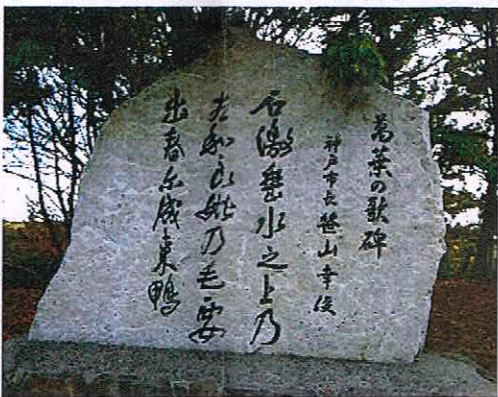 萬葉の歌碑
神戸市長 笹山幸俊
石激垂水之上乃
左和良妣乃毛要
出春尓成来鴨